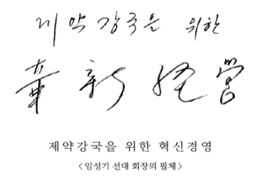 제약강국을 위한
革新經營
제약강국을 위한 혁신경영
< 임성기 선대 회장의 필체 >